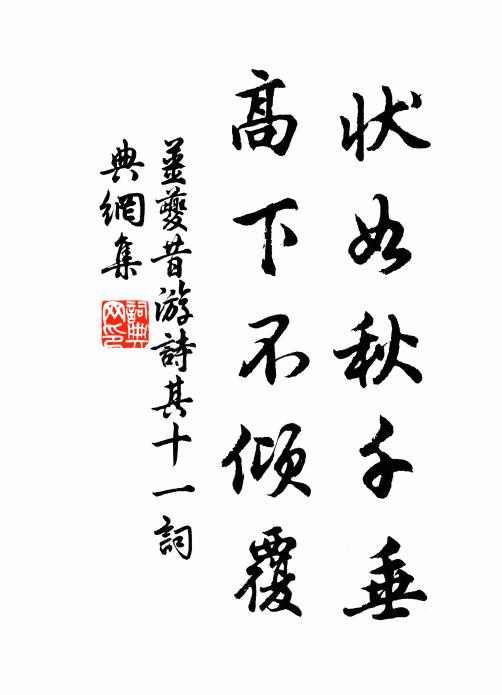 状如秋千垂
高下不傾覆
姜夔昔游詩其十一詞
典網集
詞典網印